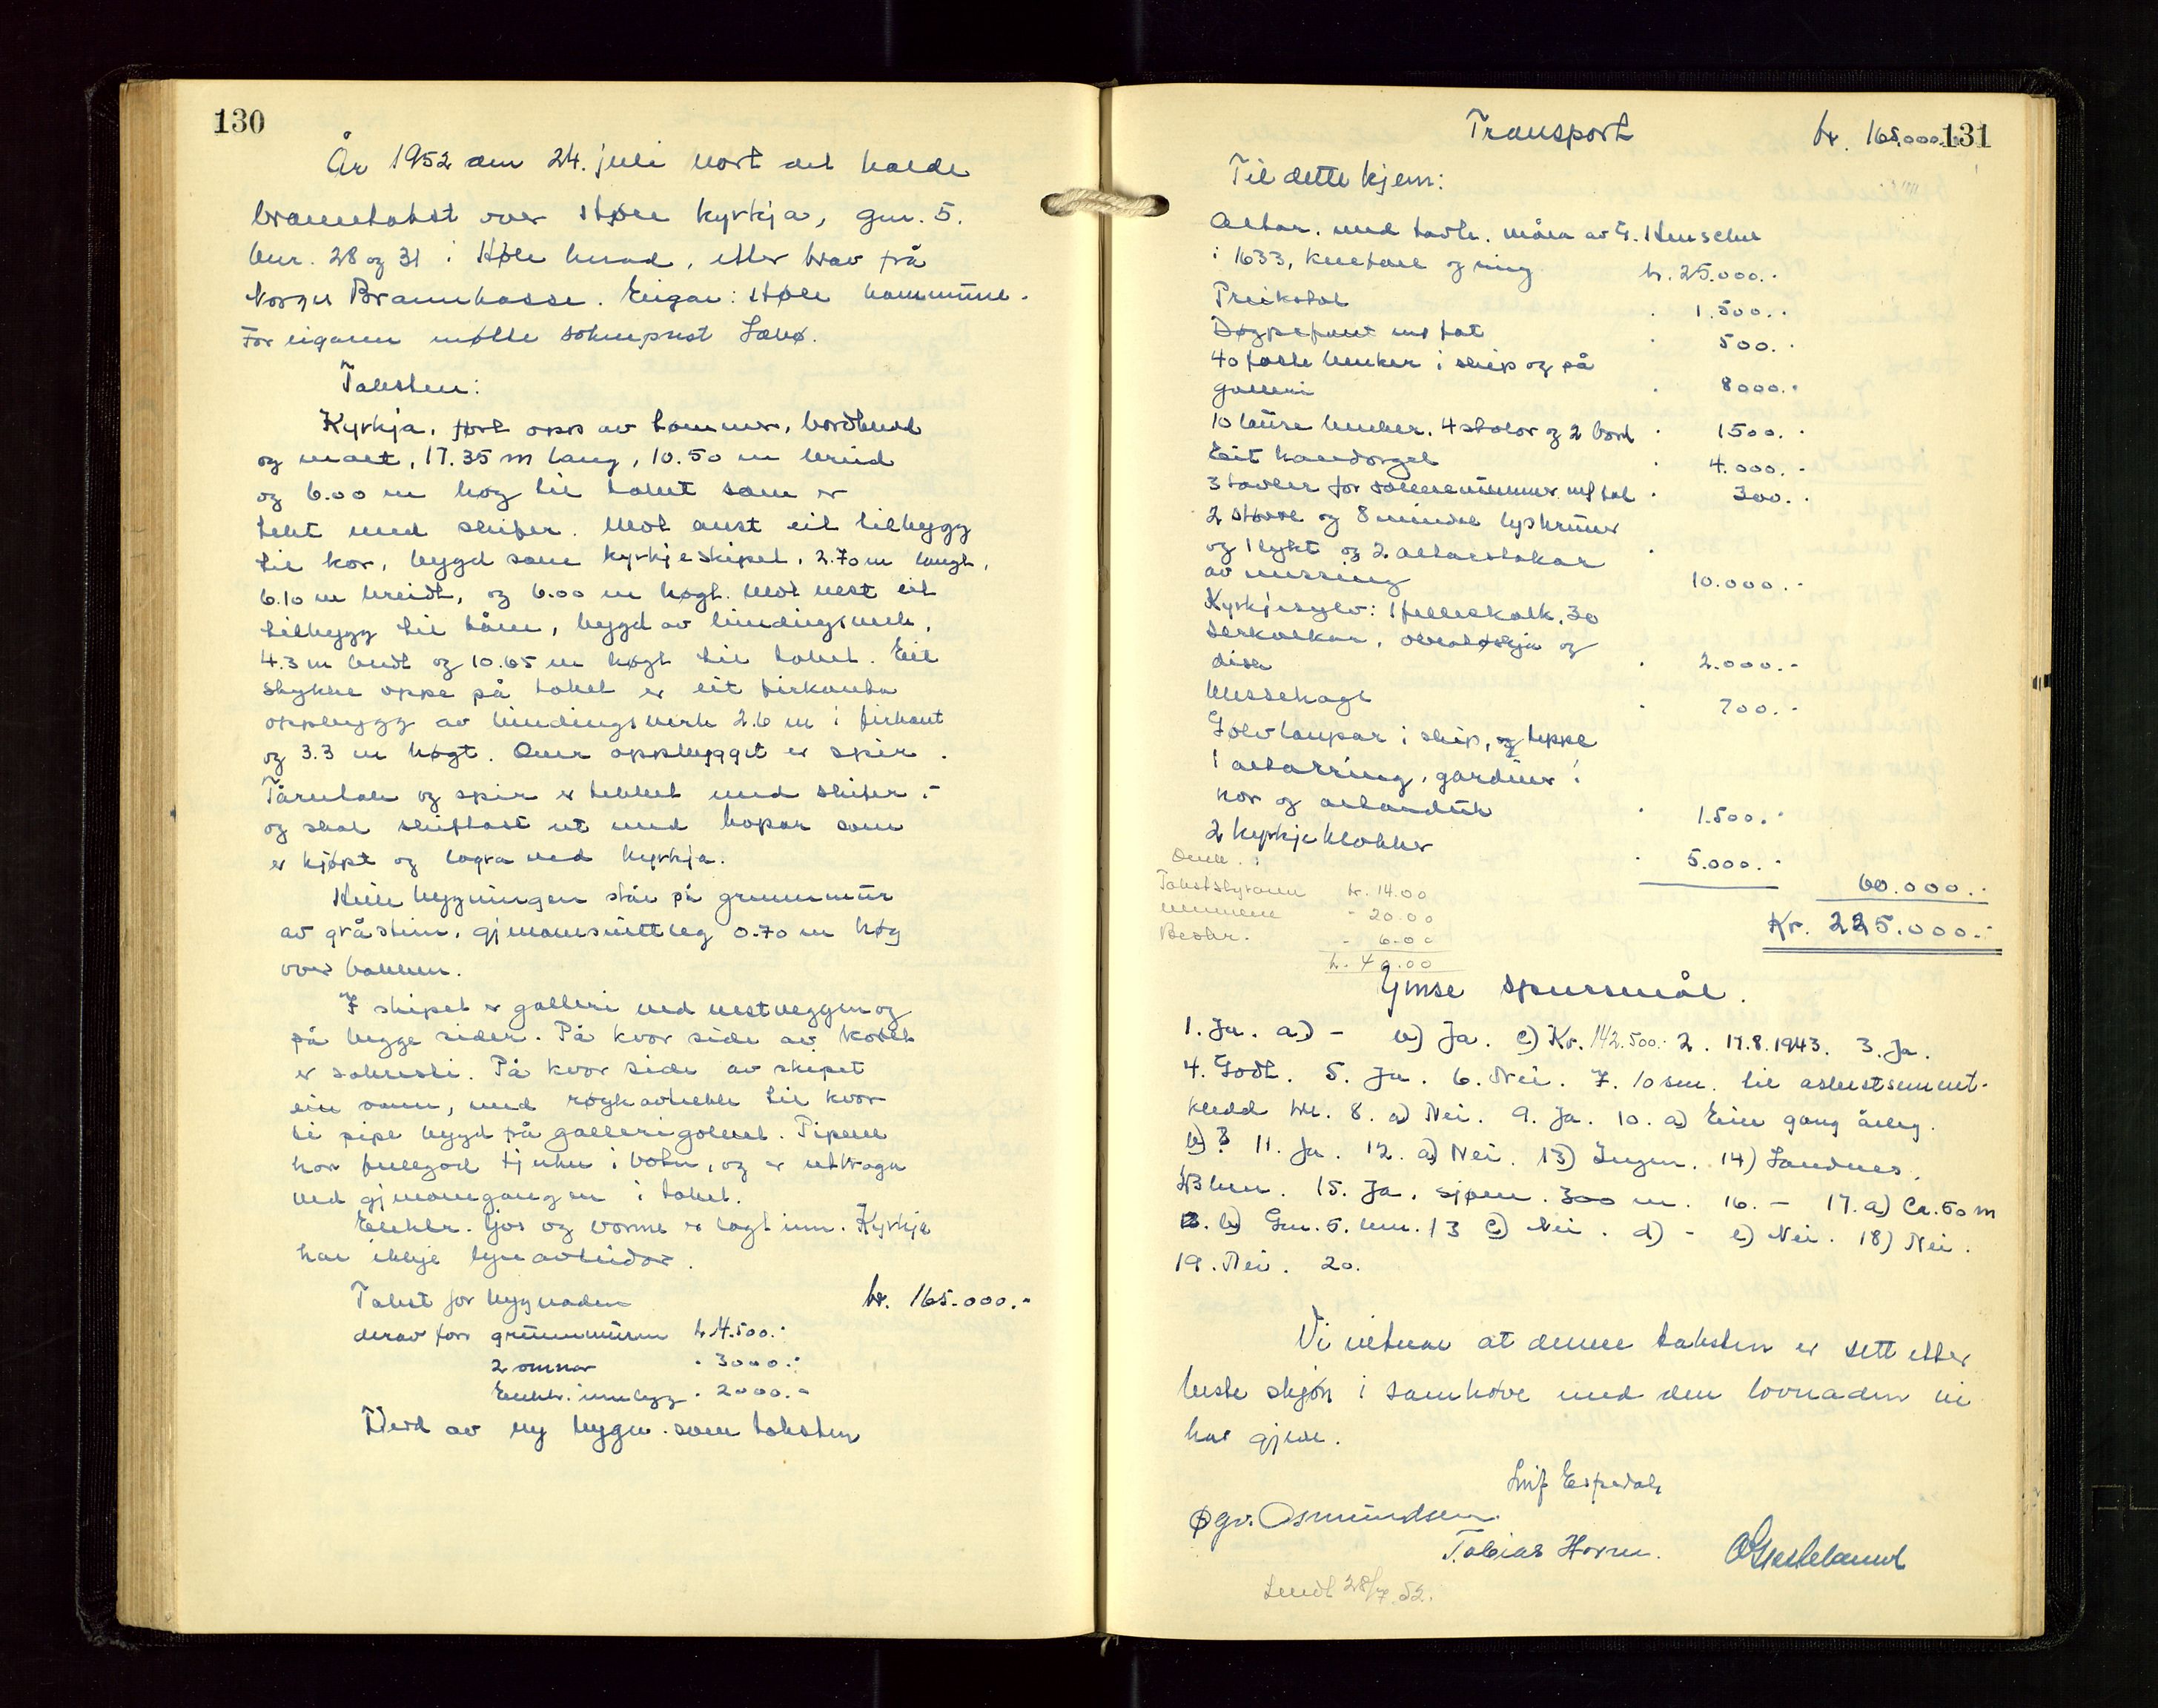 130
År 1952 den 24. juli vort det halde
branntakst over Høle kyrkja, gnr. 5.
bnr. 28 og 31 i Høle herad, etter brev frå
Norges Brannkasse. Eigar: Høle kommune.
For eigaren møtte sokneprest Løvø.
Taksten:
Kyrkja, ført opp av tømmer, bordkledd
og malt, 17.35 m lang, 10.50 m breid
og 6.00 m høg til taket som er
tekt med skifer. Mot aust eit tilbygg
til kor, bygd som kyrkjeskipet, 2.70 m langt,
6.10 m breidt, og 6.00 m høgt. Mot vest eit
tilbygg til tårn, bygd av bindingsverk,
4.3 m breidt og 10.65 m høgt til taket. Eit
stykke oppe på taket er eit firkanta
oppbygg av bindingsverk 2.6 m i firkant
og 3.3 m høgt. Over oppbygget er spir.
Tårntak og spir er tekket med skifer.-
og skal skiftast ut med kopar som
er kjøpt og lagra ved kyrkja.
Heile bygningen står på grunnmur
av gråstein, gjenomsnittleg 0.70 m høg
over bakken.
I skipet er galleri ved vestveggen og
på begge sider. På kvor side av koret
er sakresti. På kvor side av skipet
ein omn, med røykavtrekk til kvor
si pipe bygd frå gallerigolvet. Pipene
har fullgod tjukn i botn, og er utkraga
ved gjenomgangen i taket.
Elektr. ljos og varme er lagt inn. Kyrkja
har ikkje lynavleidar.
Takst for bygnaden kr. 165.000.-
derav for: grunnmuren kr. 4.500.-
2 omnar - 3000.-
Elektr. innlegg - 2000.-
Verd av ny bygn. som taksten
131
Transport kr. 165.000.-
Til dette kjem:
Altar, med tavle, måla av G. Henschel
i 1633, knefall og ring kr. 25.000.-
Preikstol - 1.500.-
Døypefont m/ fat - 500.-
40 faste benker i skip og på
galleri - 8000.-
10 lause benker, 4 stolar og 2 bord - 1500.-
Eit husorgel - 4.000.-
3 tavler for salmenummer m/ tal - 300.-
2 større og 8 mindre lyskruner
og 1 lykt og 2 altarstakar
av messing - 10.000.-
Kyrkjesylv: 1 felleskalk, 30
serkalkar, oblatøskja og
disk - 2.000.-
Messehagl - 700.-
Golvlauparar i skip, og teppe
i altarring, gardiner i
kor og altarduk - 1.500.-
2 kyrkjeklokker - 5.000.-
60.000.-
Kr. 225.000.-
Takststyraren kr. 14.00
mennene - 20.00
Beskr. - 6.00
kr. 40.00
Ymse spursmål.
1. Ja. a) - b) Ja. c) Kr. 142.500.- 2. 17.8.1943. 3. Ja.
4. Godt. 5. Ja. 6. Nei. 7. 10 sm. til asbestsement-
kledd tre. 8. a) Nei. 9. Ja. 10. a) Ein gang årleg.
b) ? 11. Ja. 12. a) Nei. 13) Ingen. 14) Sandnes,
23 km. 15. Ja, sjøen. 300 m. 16. - 17. a) Ca. 50 m
b) Gnr. 5. bnr. 13 c) Nei. d) - e) Nei. 18) Nei.
19. Nei. 20.
Vi vitnar at denne taksten er sett etter
beste skjøn i samhøve med den lovnaden vi
har gjeve.
Leif Espedal
Øgv. Osmundsen.
Tobias Horve.
Sendt 28/7.52.